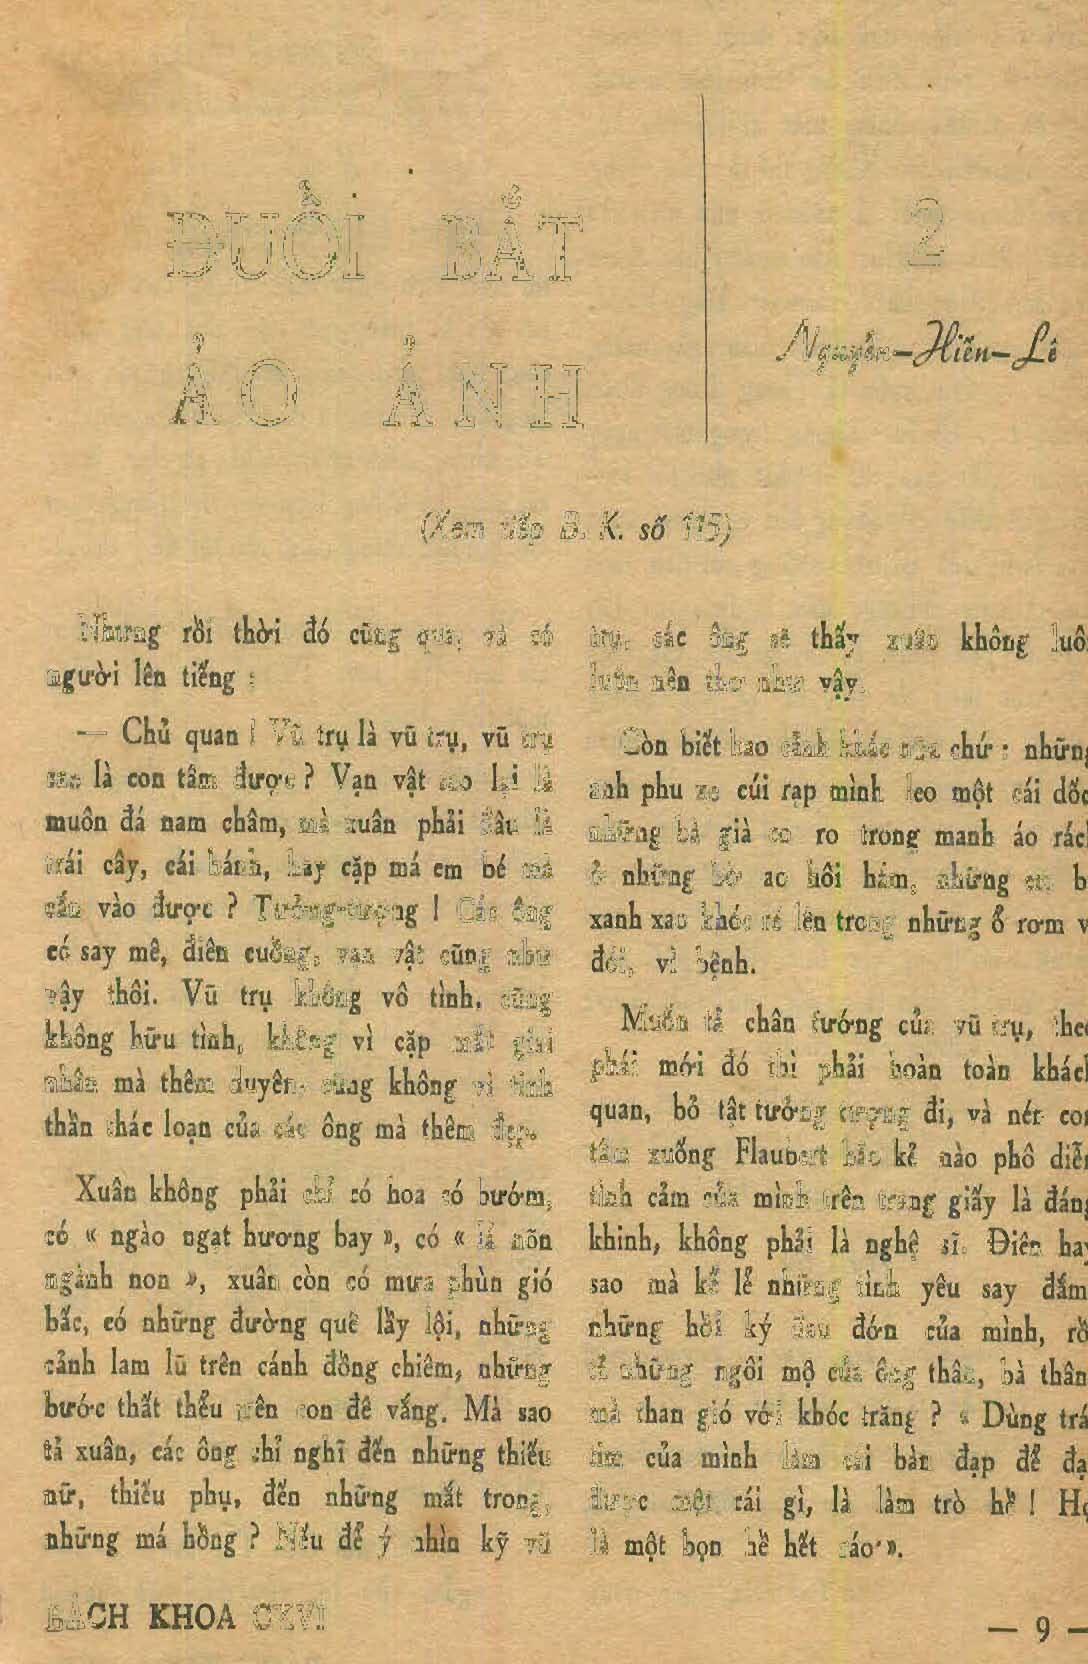 ĐUỔI BẮT
ẢO ẢNH
2
Nguyễn-Hiến-Lê
(Xem tiếp B. K. số 115)
Nhưng rồi thời đó cũng qua, và có
người lên tiếng :
— Chủ quan ! Vũ trụ là vũ trụ, vũ trụ
sao là con tâm được ? Vạn vật sao lại là
muôn đá nam châm, mà xuân phải đâu là
trái cây, cái bánh, hay cặp má em bé mà
cắn vào được ? Tưởng-tượng ! Các ông
có say mê, điên cuồng, vạn vật cũng như
vậy thôi. Vũ trụ không vô tình, cũng
không hữu tình, không vì cặp mắt giai
nhân mà thêm duyên, cũng không vì tinh
thần thác loạn của các ông mà thêm đẹp.
Xuân không phải chỉ có hoa có bướm,
có « ngào ngạt hương bay », có « lá nõn
ngành non », xuân còn có mưa phùn gió
bấc, có những đường quê lầy lội, những
cảnh lam lũ trên cánh đồng chiêm, những
bước thất thểu trên con đê vắng. Mà sao
tả xuân, các ông chỉ nghĩ đến những thiếu
nữ, thiếu phụ, đến những mắt trong,
những má hồng ? Nếu để ý nhìn kỹ vũ
trụ, các ông sẽ thấy xuân không luôn
luôn nên thơ như vậy.
Còn biết bao cảnh khác nữa chứ : những
anh phu xe cúi rạp mình leo một cái dốc
những bà già co ro trong manh áo rách
ở những bờ ao hôi hám, những em b
xanh xao khóc ré lên trong những ổ rơm v
đói, vì bệnh.
Muốn tả chân tướng của vũ trụ, theo
phái mới đó thì phải hoàn toàn khách
quan, bỏ tật tưởng tượng đi, và nén con
tâm xuống Flaubert bảo kẻ nào phô diễn
tình cảm của mình trên trang giấy là đáng
khinh, không phải là nghệ sĩ. Điên hay
sao mà kể lể những tình yêu say đắm
những hồi ký đau đớn của mình, rồi
tả những ngôi mộ của ông thân, bà thân
mà than gió với khóc trăng ? « Dùng trá
tim của mình làm cái bàn đạp để đạ
được một cái gì, là làm trò hề ! Họ
là một bọn hề hết cáo ».
BÁCH KHOA CXVI
— 9 —